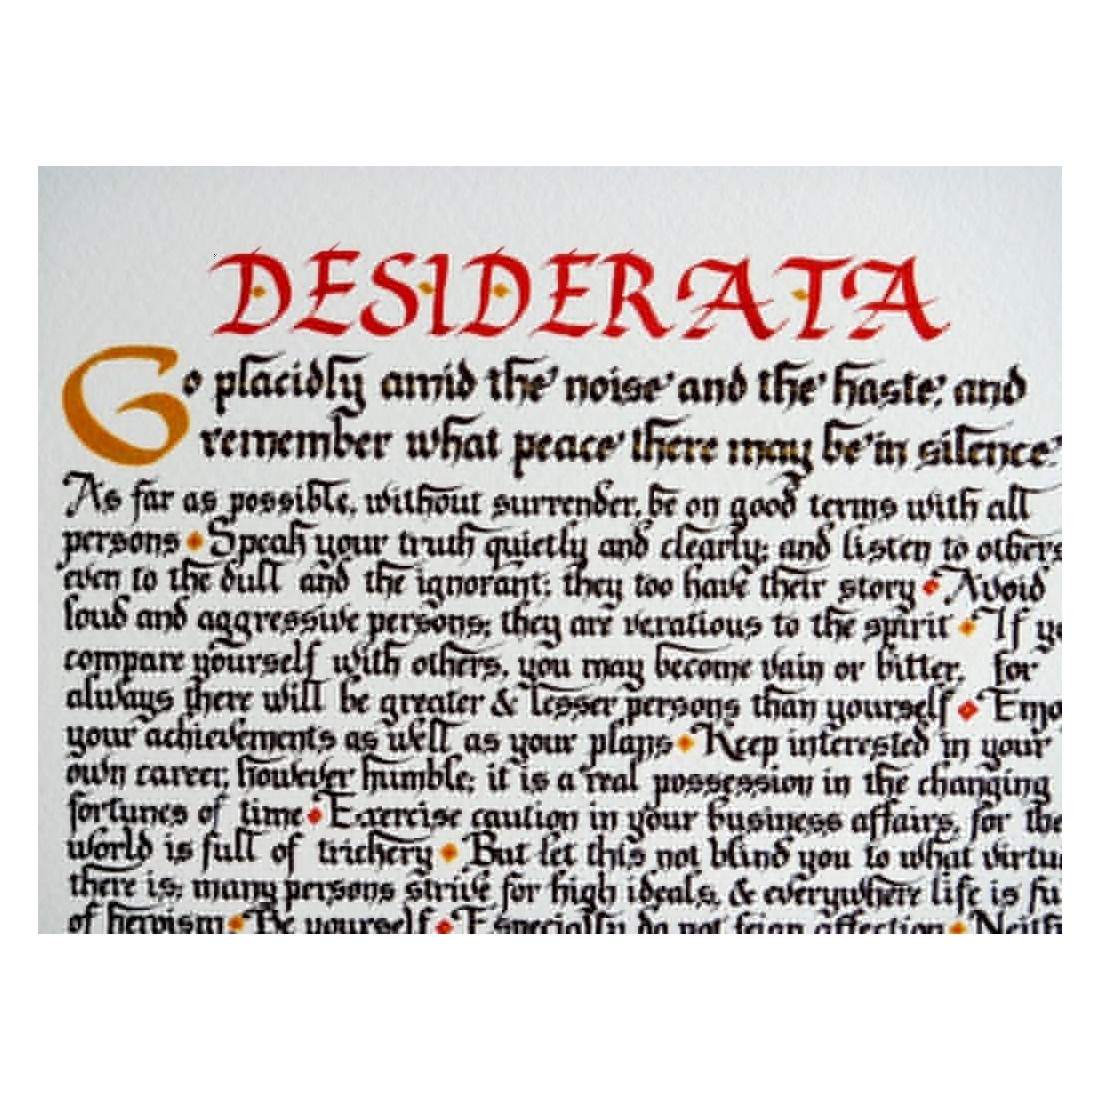 DESIDERATA
Go placidly amid the noise and the haste, and
remember what peace there may be in silence.
As far as possible, without surrender, be on good terms with all
persons Speak your truth quietly and clearly; and listen to others
even to the dull and the ignorant; they too have their story Avoid
loud and aggressive persons; they are veratious to the spirit If yo
compare yourself with others, you may become vain or bitter, for
always there will be greater & lesser persons than yourself Enjo
your achievements as well as your plans Keep interested in your
own career, however humble; it is a real possession in the changing
fortunes of time Exercise caution in your business affairs, for the
world is full of trichery But let this not blind you to what virtu
there is; many persons strive for high ideals, & everywhere life is fu
of heroism Be yourself Especially do not feign affection Neith